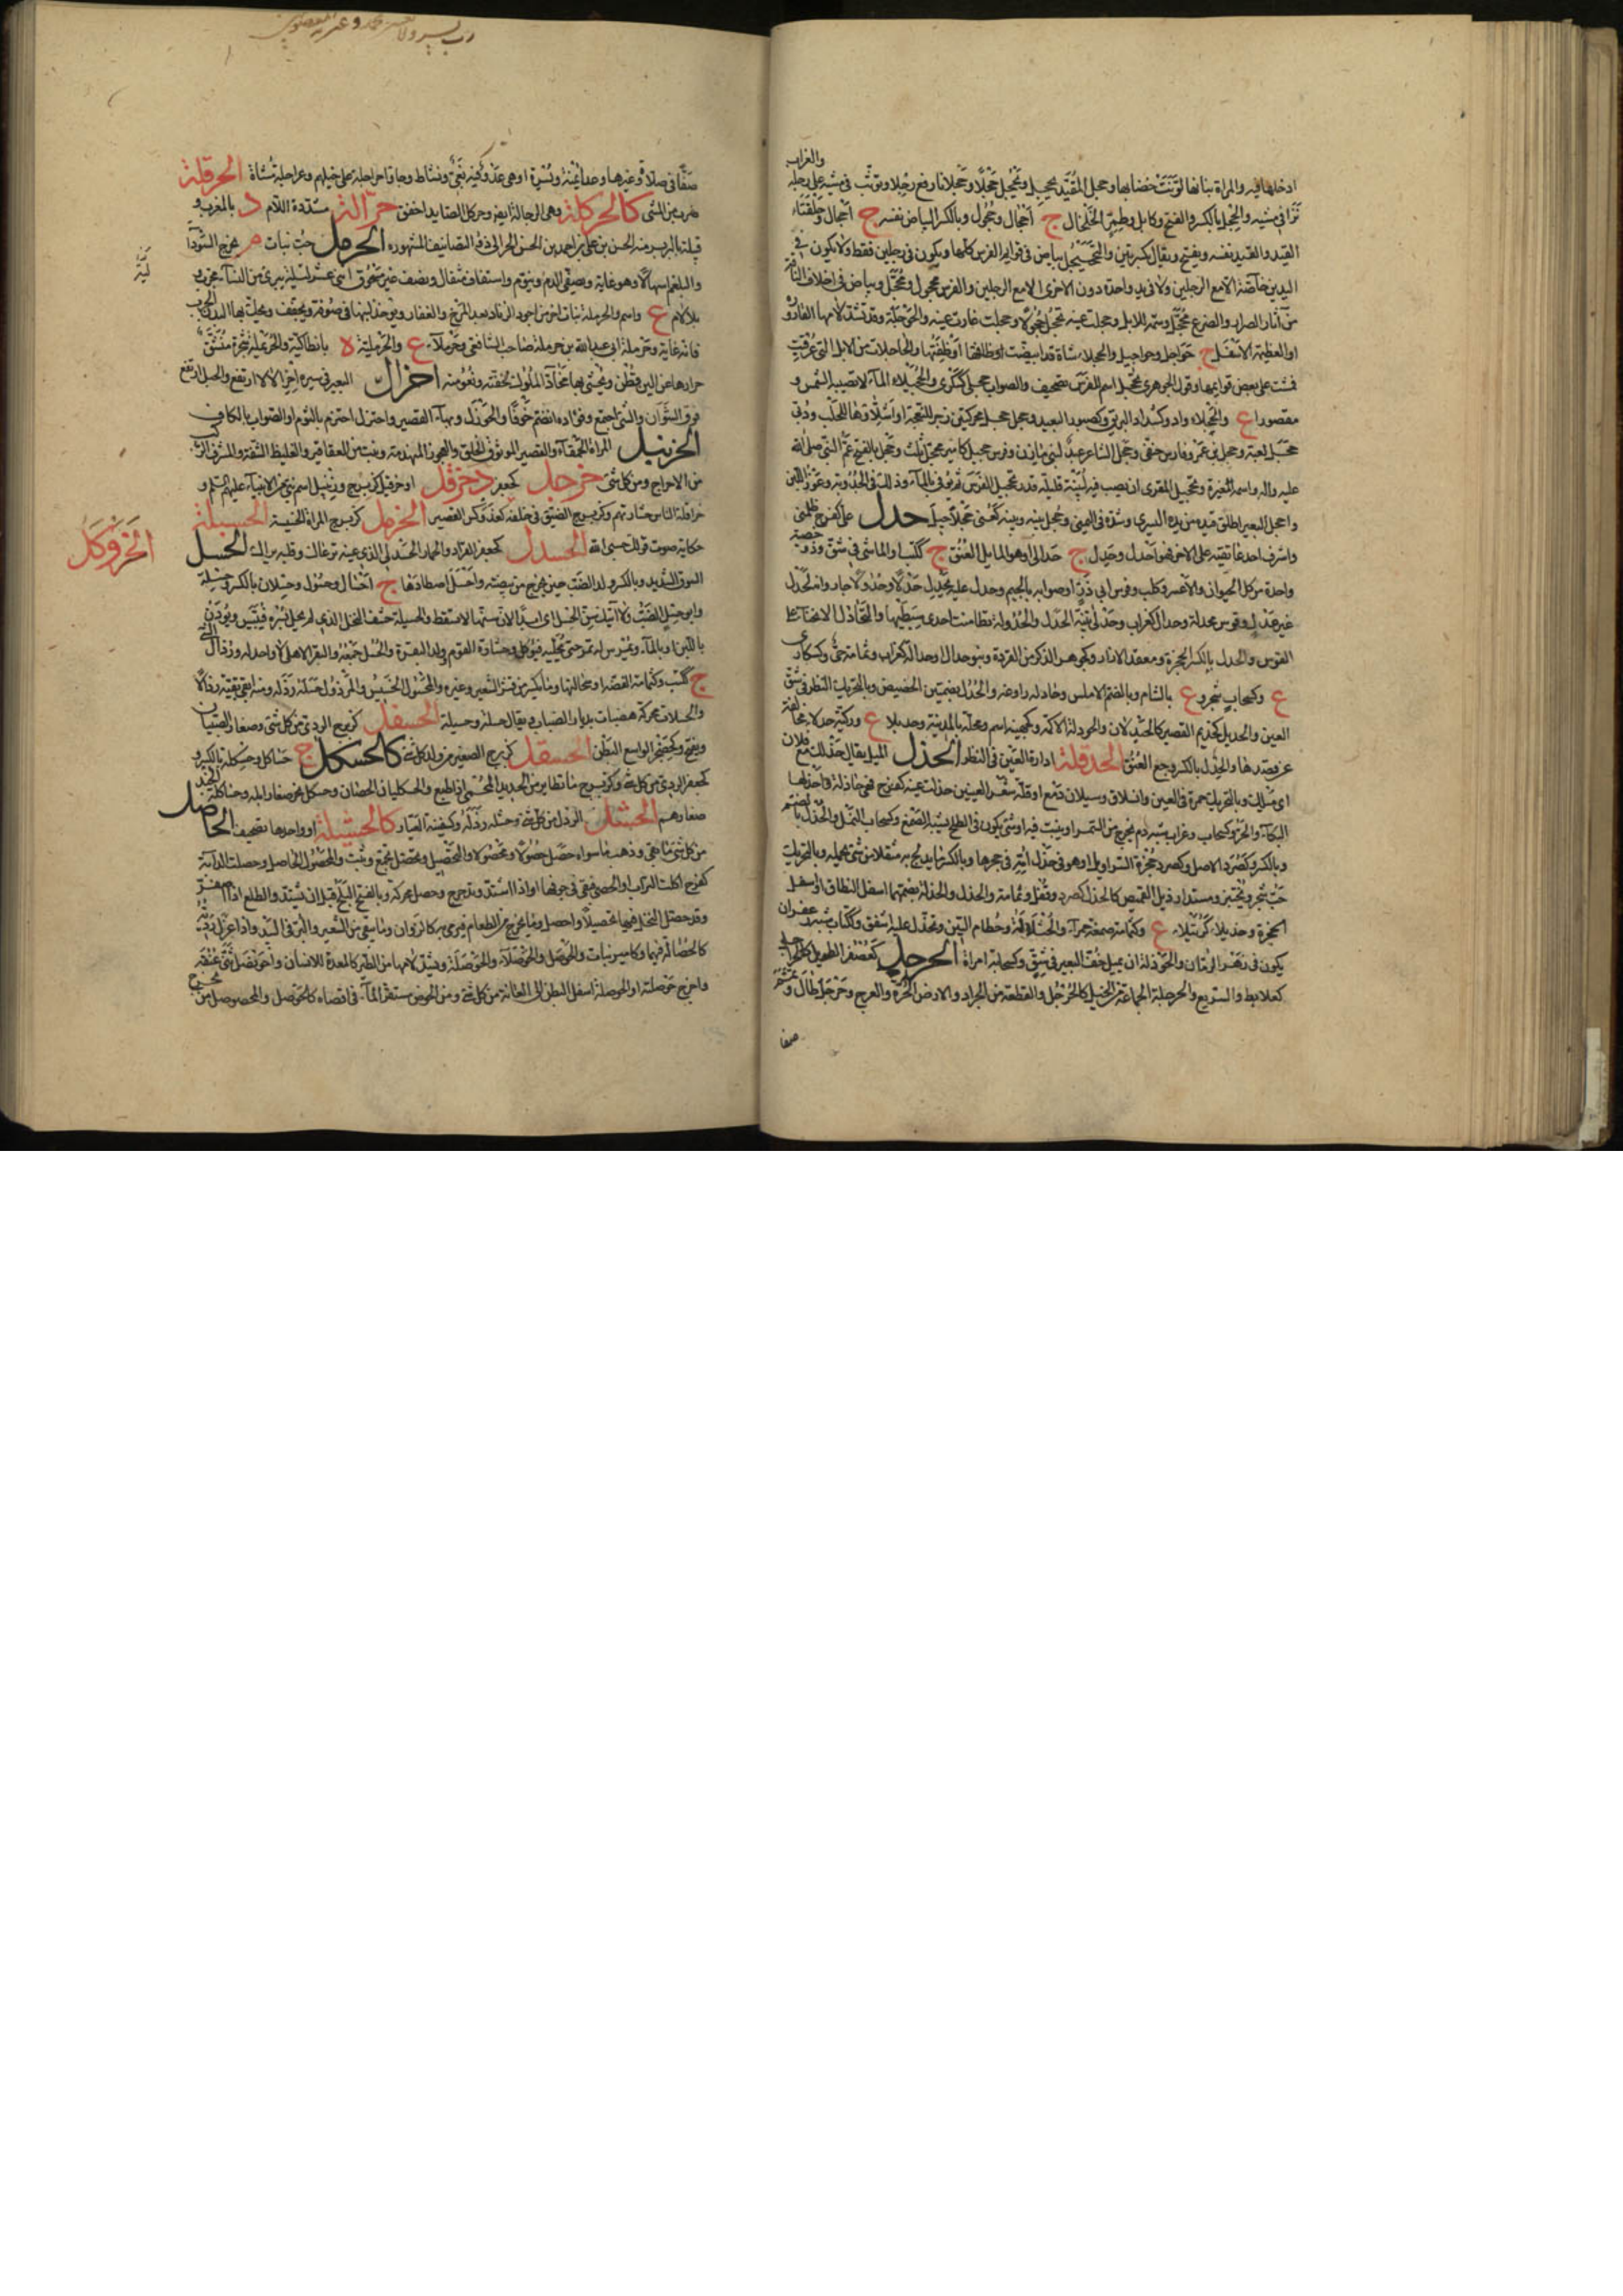 والغراب
ادخلها فيه والمراة بنانها لونت خضابها وحجل المقيد يحجل ويحجل حجلا وحجلانا رفع رجلا وتوثب في مشيه على رجله
نزا في مشيه والحجل بالكسر والفتح وكابل وطمر الخلخال ج احجال وحجول وبالكسر البياض نفسه ج احجال وحلقتاء
القيد والقيد نفسه ويفتح ويقال بكسرتين والتحجيل بياض في قوايم الفرس كلها ويكون في رجلين فقط ولا يكون في
اليدين خاصة الا مع الرجلين ولا في يد واحدة دون الاخرى الا مع الرجلين والفرس محجول ومحجل وبياض في اخلاف الناقة
من آثار الصرار والضرع محجل وسمة للابل وحجلت عينه تحجل حجولا وحجلت غارت عينه والحوجلة وقد تشدد لامها القارورة
او العظيمة الاسفل ج حواجل وحواجيل والحجلاء شاة قد ابيضت اوظفتها والحاجلات من الابل التي عرقبت
فمشت على بعض قوايمها وقول الجوهري تحجل اسم للفرس تصحيف والصواب عجلى كسكرى والحجيلاء الماء لا تصيبه الشمس و
مقصورا ع والحجلاء واد وكشداد البريق وكصبور البعيد وحجل حجل محركتين زجر للنعجة او اشلاء لها للحلب ودبى
حجل لعبة وحجل بن عمرو فارس حنفي وحجل الشاعر عبد لبني مازن وفرس حجيل كامير محجل ثلث وحجل بالفتح عم النبي صلى الله
عليه واله واسمه المغيرة وتحجيل المقري ان يصب فيه لبينة قليلة قدر تحجيل الفرس ثم يوفى بالماء وذلك في الجدوبة وعوز اللبن
واحجل البعير اطلق قيده من يده اليسرى وشده في اليمنى وحجل بينه وبينه كعني حجلا حيل حدل على كفرح ظلمني
واشرف احد عاتقيه على الاخر فهو احدل وحدل ج حدالى او هو المايل العنق ج ككتب والماشي في شق وذو خصية
واحدة من كل الحيوان والاعسر وكلب وفرس ابي ذر او صوابه بالجيم وحدل عليه يحدل حدلا وحدولا جار وانه لحدل
غير عدل وقوس محدلة وحدال كغراب وحدلى بينة الحدل والحدولة تطامنت احدى سيتيها والتحادل الانحناء على
القوس والحدل بالكسر الحجزة ومعقد الازار وكجوهر الذكر من القردة وبنو حدال او حدالة كغراب وثمامة حي وكسكارى
ع وكسحاب شجر و ع بالشام وبالضم الاملس وحادله راوغه والحدل بضمتين الحضيض وبالتحريك النظر في شق
العين والحديل كحذيم القصير كالحندلان والحودلة الاكمة وكجهينة اسم ومحلة بالمدينة وحديلا ع وركية حدلاء مخالفة
عن قصدها والحدل بالكسر وجع العنق الحدقلة ادارة العين في النظر الحذل الميل يقال حذلك مع فلان
اي ميلك وبالتحريك حمرة في العين وانسلاق وسيلان دمع او قلة شعر العينين حذلت عينه كفرح فهي حاذلة واحذلها
البكاء والحر وكسحاب وغراب شبه دم يخرج من السمر او ينبت فيه او شئ يكون في الطلح يشبه الصمغ وكسحاب النمل والحذل بالضم
وبالكسر وكصرد الاصل وكصرد حجزة السراويل او هو في حذل امه في حجرها وبالكسر ما يدلج به مثقلا من شئ يحمله وبالتحريك
حب شجر ويختبز ومستدار ذيل القميص كالحذل كصرد وقفل وثمامة والحذل والحذلة بضمتهما اسفل النطاق او اسفل
الحجزة وحذيلاء كرتيلاء ع وكثمامة صمغة حمراء والحثالة وحطام التبن وتحذل عليه اشفق وككتاب شبه زعفران
يكون في زهر الرمان والحوذلة ان يميل خف البعير في شق وكسحابة امراة الحرجل كعصفر الطويل كالحراجل
كعلابط والسريع والحرجلة الجماعة من الخيل كالحرجل والقطعة من الجراد والارض الحرة والعرج وحرجل طال وتمم
صفا
رب يسر ولا تعسر
صفا في صلاة وغيرها وعدا يمنة ويسرة او هي عدو فيه بغي ونشاط وجاؤا حراجلة على خيلهم وعراجلة مشاة الحرقلة
ضرب من المشي كالحركلة وهي الرجالة ايضا وحركل الصايد اخفق حرالة مشددة اللام د بالمغرب و
قبيلة بالبربر منه الحسن بن علي بن احمد بن الحسن الحرالي ذو التصانيف المشهورة الحرمل حب نبات م يخرج السوداء
والبلغم اسهالا وهو غاية ويصفي الدم وينوم واستفاف مثقال ونصف غير مسحوق اثنى عشر ليلة يبري من النسا مجرب
بلا لام ع واسم والحرملة نبات اخر من اجود الزناد بعد المرخ والعفار ويوخذ لبنها في صوفة ويجفف ويحك بها البدن الجرب
فانه غاية وحرملة ابي عبدالله بن حرملة صاحب الشافعي وحرملاء ع والحرملية ه بانطاكية والحريملة شجرة تنشق
جراؤها عن الين قطن ويحشى بها مخاد الملوك لخفته ونعومته احزال البعير في سيره احزئلالا ارتفع والجبل ارتفع
فوق السراب والشي اجتمع وفؤاده انضم خوفا والحوزل وبهاء القصير واحتزل احتزم بالثوب او الصواب بالكاف
الحزنبل المراة الحمقاء والقصير الموثق الخلق والعجوز المنهدمة ونبت من العقاقير والغليظ الشفة والمشرف الركب
من الاحراج ومن كل شئ حزجل كجعفر د حزقل او حزقيل كزبرج وزنبيل اسم نبي من الانبياء عليهم السلام و
حزاقلة الناس خشارتهم وكزبرج الضيق في خلقه الحزمل كزبرج المراة الخسيسة الحسبلة
الحزوكل
حكاية صوت قولك حسبي الله الحسدل كجعفر القراد والحمار الحسدلي الذي عينه تراغاك وقلبه يراك الحسل
السوق الشديد وبالكسر ولد الضب حين يخرج من بيضته واحسل اصطادها ج احسال وحسول وحسلان بالكسر وحسلة
وابو حسل الضب ولا آتيك سن الحسل اي ابدا لان سنها لا تسقط والحسيلة حشف النخل الذي لم يحل بسره فييبس ويودن
باللبن او بالماء ويمرس له تمر حتى يحليه فيوكل وحشارة القوم وولد البقرة والحسل نبعة والبقر الاهلي لا واحد له ورذال الشئ
ج ككتب وكثمامة الفضة او سحالتها وما يكسر من قشر الشعير وغيره والمحسول الخسيس والمرذول حسله رذله ومنه ابقى بقيته رذالا
والحسلات محركة هضبات بديار الضباب ويقال حسلة وحسيلة الحسفل كزبرج الردي من كل شئ وصغار الصبيان
ويفتح وكحضجر الواسع البطن الحسقل كزبرج الصغير من ولد كل شئ كالحسكل ج حساكل وحسكلة بالكسر و
كجعفر الردي من كل شئ وكزبرج ما تطاير من الحديد المحمى اذا طبع والحسكليان الخصيان وحسكل نحر صغار ابله وحساكلة الجند
صغارهم الحشل الرذل من كل شئ وحشله رذله وكسفينة العيال كالحشبلة او واحدها تصحيف الحاصل
من كل شئ ما بقي وذهب ما سواه حصل حصولا ومحصولا والتحصيل وتحصل تجمع وثبت والمحصول الحاصل وحصلت الدابة
كفرح اكلت التراب او الحصى فبقي في جوفها او اذا اشتد وتدحرج وحصل محركة وبالفتح البلح قبل ان يشتد والطلع اذا اصفر
وقد حصل النخل فيهما تحصيلا واحصل وما يخرج من الطعام فيرمى به كالزوان وما يبقى من الشعير والبر في البيدر واذا عزل رديه
كالحصالة فيهما وكامير نبات والحوصل والحوصلاء والحوصلة وتشدد لامها من الطير كالمعدة للانسان واحونصل ثنى عنقه
واخرج حوصلته او الحوصلة اسفل البطن الى العانة من كل شئ ومن الحوض مستقر الماء في اقصاه كالحوصل والمحوصل من يخرج